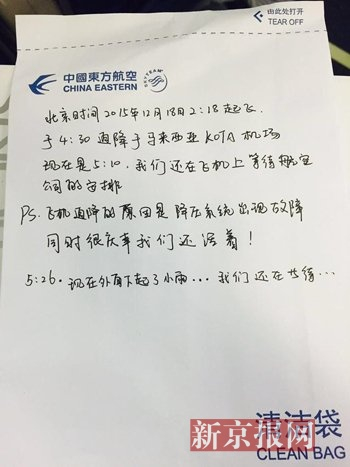 由此处打开
TEAR OFF
中國東方航空
CHINA EASTERN
SKYTEAM
北京时间2015年12月18日2:18起飞.
于4:30迫降于马来西亚KOTA机场
现在是5:10.我们还在飞机上等待航空
公司的安排
PS.飞机迫降的原因是降压系统出现故障
同时很庆幸我们还活着!
5:26.现在外面下起了小雨...我们还在等待...
清洁袋
新京报网
CLEAN BAG